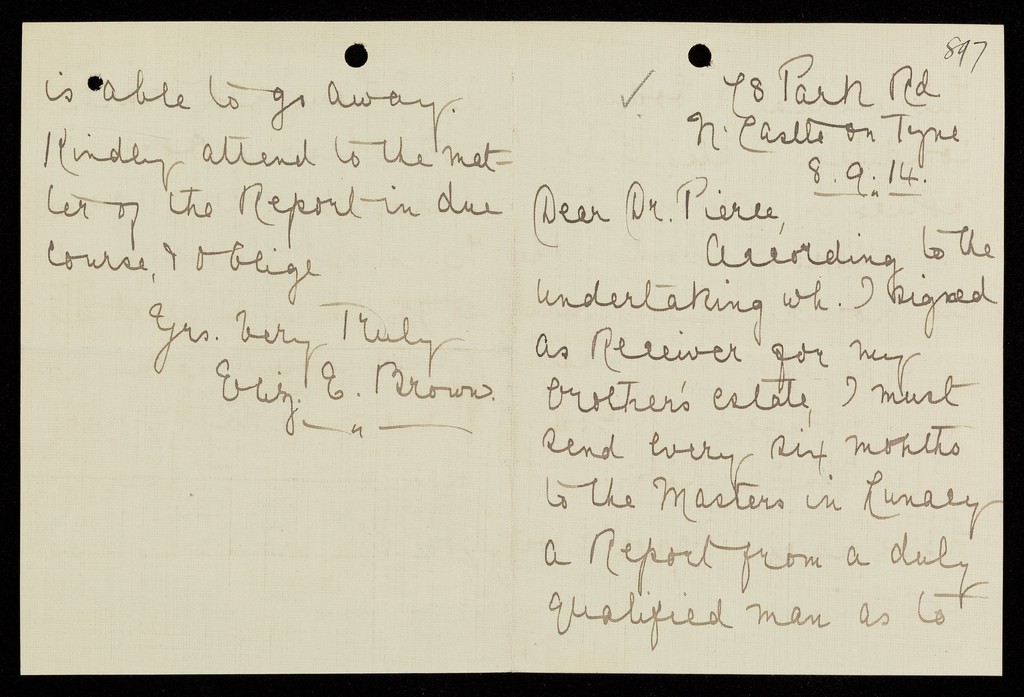 897
78 Park Rd
N. Castle on Tyne
8.9.14.
Dear Dr. Pierce,
According to the
undertaking wh. I signed
as Receiver for my
brother's estate, I must
send every six months
to the Masters in Lunacy
a Report from a duly
qualified man as to
is able to go away.
Kindly attend to the mat-
ter of the Report in due
course, & oblige
Yrs. Very Truly
Eliz. E. Brown.